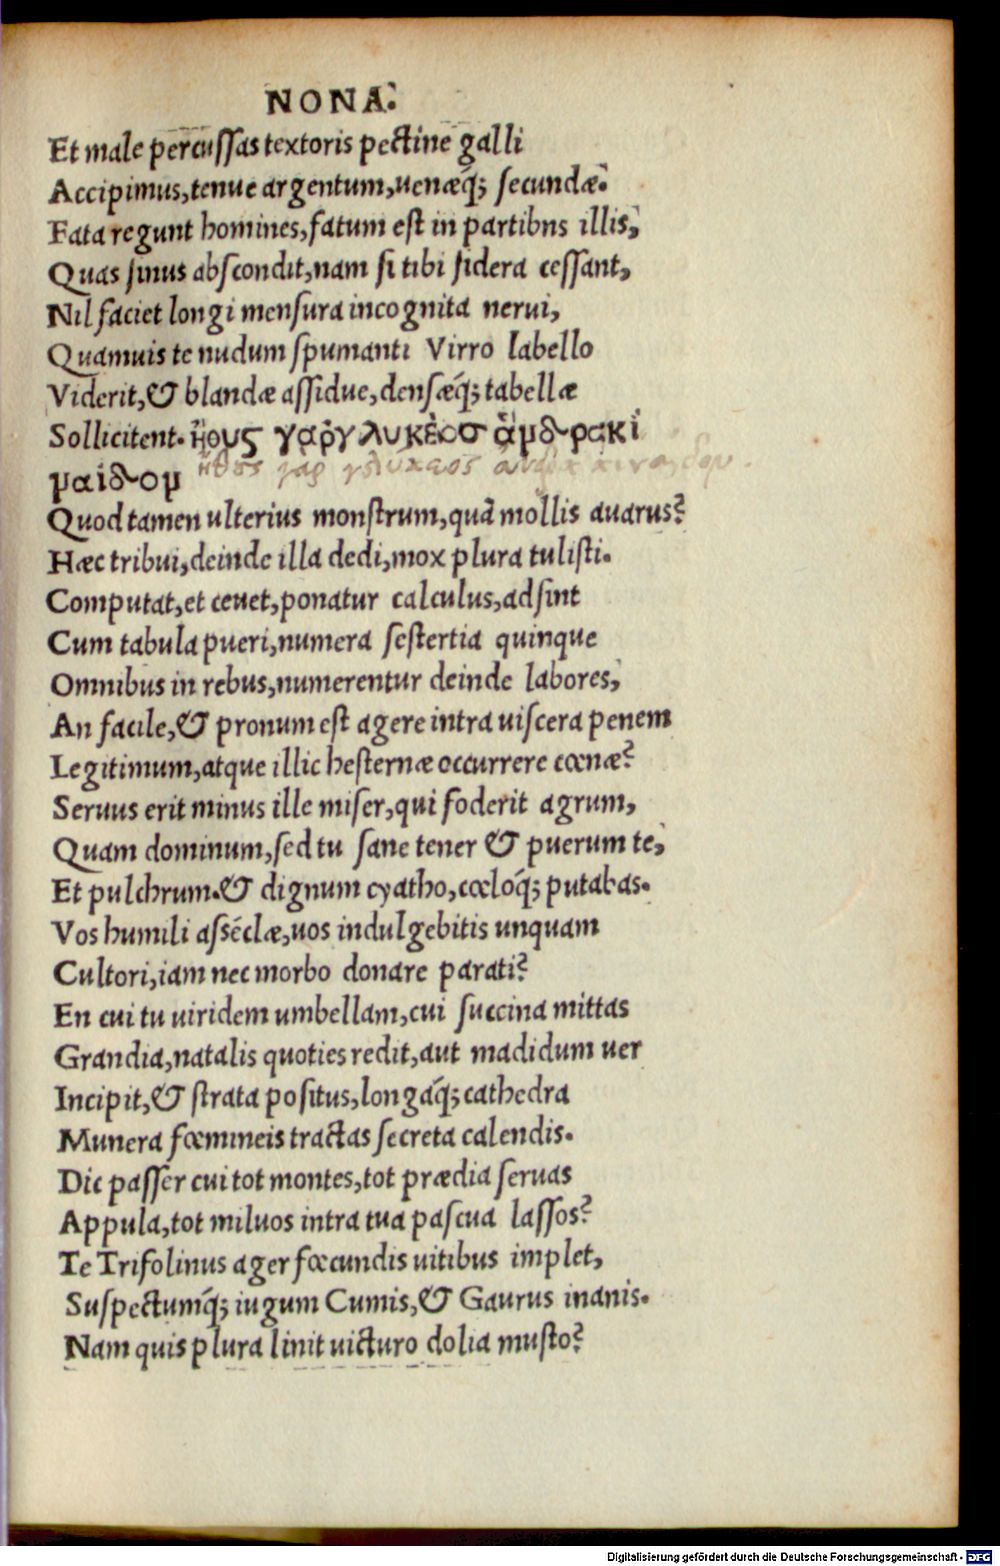 NONA.
Et male percuſſas textoris pectine galli
Accipimus, tenue argentum, uenæq; ſecundæ.
Fata regunt homines, fatum eſt in partibns illis,
Quas ſinus abſcondit, nam ſi tibi ſidera ceſſant,
Nil faciet longi menſura incognita nerui,
Quamuis te nudum ſpumanti Virro labello
Viderit, & blandæ aſſidue, denſæq́; tabellæ
Sollicitent. ἤθυς γαρ̀γλυκὲοσ ἄμδρακί
μαίδομ
Quod tamen ulterius monſtrum, quã mollis auarus?
Hæc tribui, deinde illa dedi, mox plura tuliſti.
Computat, et ceuet, ponatur calculus, adſint
Cum tabula pueri, numera ſeſtertia quinque
Omnibus in rebus, numerentur deinde labores,
An facile, & pronum eſt agere intra uiſcera penem
Legitimum, atque illic heſternæ occurrere cœnæ?
Seruus erit minus ille miſer, qui foderit agrum,
Quam dominum, ſed tu ſane tener & puerum te,
Et pulchrum. & dignum cyatho, cœloq́; putabas.
Vos humili aſſẽclæ, uos indulgebitis unquam
Cultori, iam nec morbo donare parati?
En cui tu uiridem umbellam, cui ſuccina mittas
Grandia, natalis quoties redit, aut madidum uer
Incipit, & ſtrata poſitus, longaq́; cathedra
Munera fœmineis tractas ſecreta calendis.
Dic paſſer cui tot montes, tot prædia ſeruas
Appula, tot miluos intra tua paſcua laſſos?
Te Trifolinus ager fœcundis uitibus implet,
Suſpectumq́; iugum Cumis, & Gaurus inanis.
Nam quis plura linit uicturo dolia muſto?
Digitalisierung gefördert durch die Deutsche Forschungsgemeinschaft - DFG